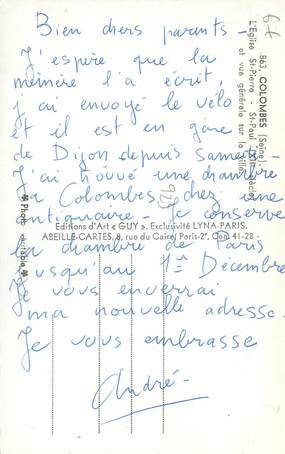 Bien chers parents -
J'espère que la
mémère l'a écrit,
j'ai envoyé le vélo
et il est en gare
de Dijon depuis samedi -
J'ai trouvé une chambre
à Colombes chez une
antiquaire - Je conserve
la chambre de Paris
jusqu'au 1er Décembre
Je vous enverrai
ma nouvelle adresse.
Je vous embrasse
André -
863. COLOMBES (Seine)
L'Eglise St-Pierre - St-Paul
et vue générale sur la Ville.
Editions d'Art « GUY ». Exclusivité LYNA-PARIS.
ABEILLE-CARTES, 8, rue du Caire, Paris-2e. Cen. 41-28
Photo véritable
923